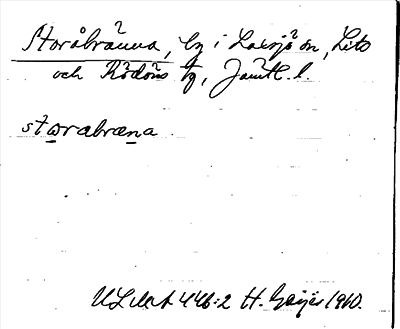 Storåbränna, by i Laxsjö sn, Lits
och Rödöns tg, Jämtl. l.
storabræna
ULMA 446:2 H. Geijer 1910.